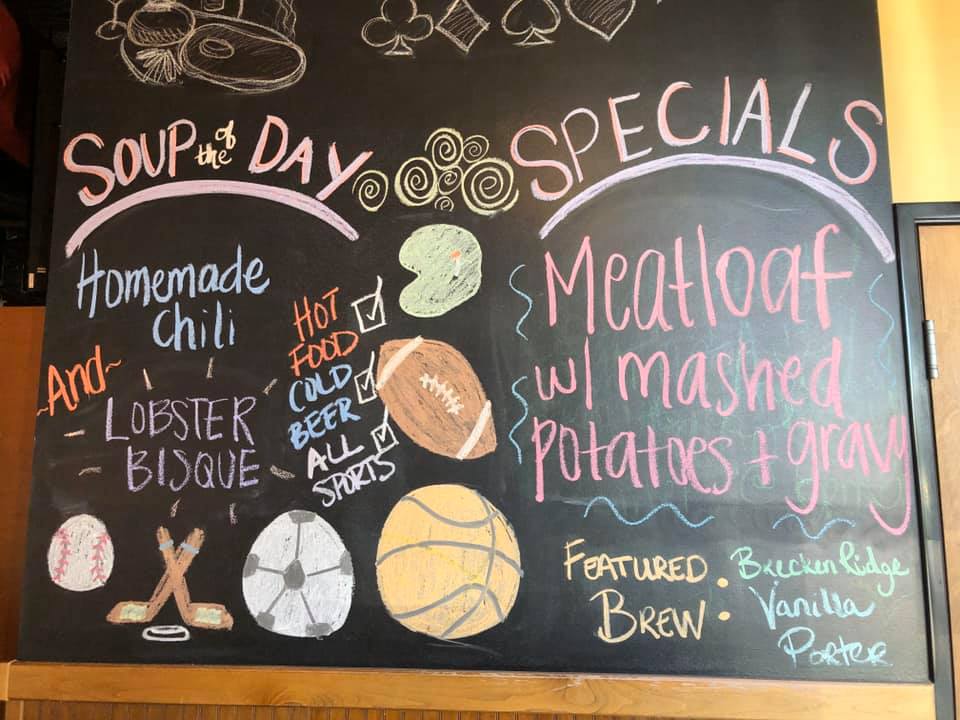 SOUP of the DAY
Homemade
Chili
~And~
LOBSTER
BISQUE
HOT
FOOD
COLD
BEER
ALL
SPORTS
SPECIALS
Meatloaf
w/ mashed
potatoes + gravy
FEATURED
BREW:
BrecKenRidge
Vanilla
Porter